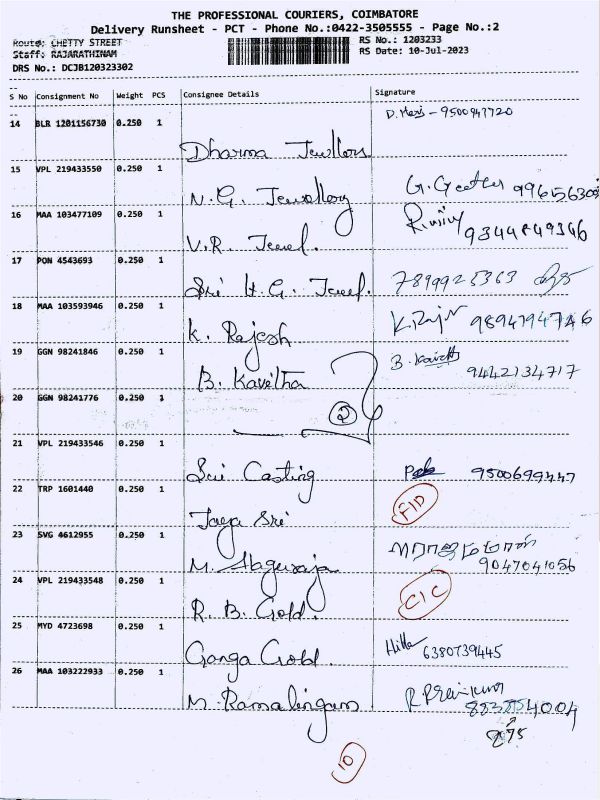 THE PROFESSIONAL COURIERS, COIMBATORE
Delivery Runsheet - PCT - Phone No.:0422-3505555 - Page No.:2
Route: CHETTY STREET
RS No.: 1203233
Staff: RAJARATHINAM
RS Date: 10-Jul-2023
DRS No.: DCJB120323302
S No Consignment No Weight PCS Consignee Details Signature
14 BLR 1201156730 0.250 1 Dharma Jewllors 9500947720
15 VPL 219433550 0.250 1 N.G. Jewellory G. Geetha
16 MAA 103477109 0.250 1 V.R. Jewel.
17 PON 4543693 0.250 1 Sri H.G. Jewel. 7899925363
18 MAA 103593946 0.250 1 K. Rajesh 9894194746
19 GGN 98241846 0.250 1 B. Kavitha B. Kavitha 9442134717
20 GGN 98241776 0.250 1 2
21 VPL 219433546 0.250 1 Sri Casting 9500699447
22 TRP 1601440 0.250 1 Jaya Sri
23 SVG 4612955 0.250 1 M. 9047041056
24 VPL 219433548 0.250 1 R. B. Gold. CIC
25 MYD 4723698 0.250 1 Ganga Gold. 6380739445
26 MAA 103222933 0.250 1 M. Ramalingam
10